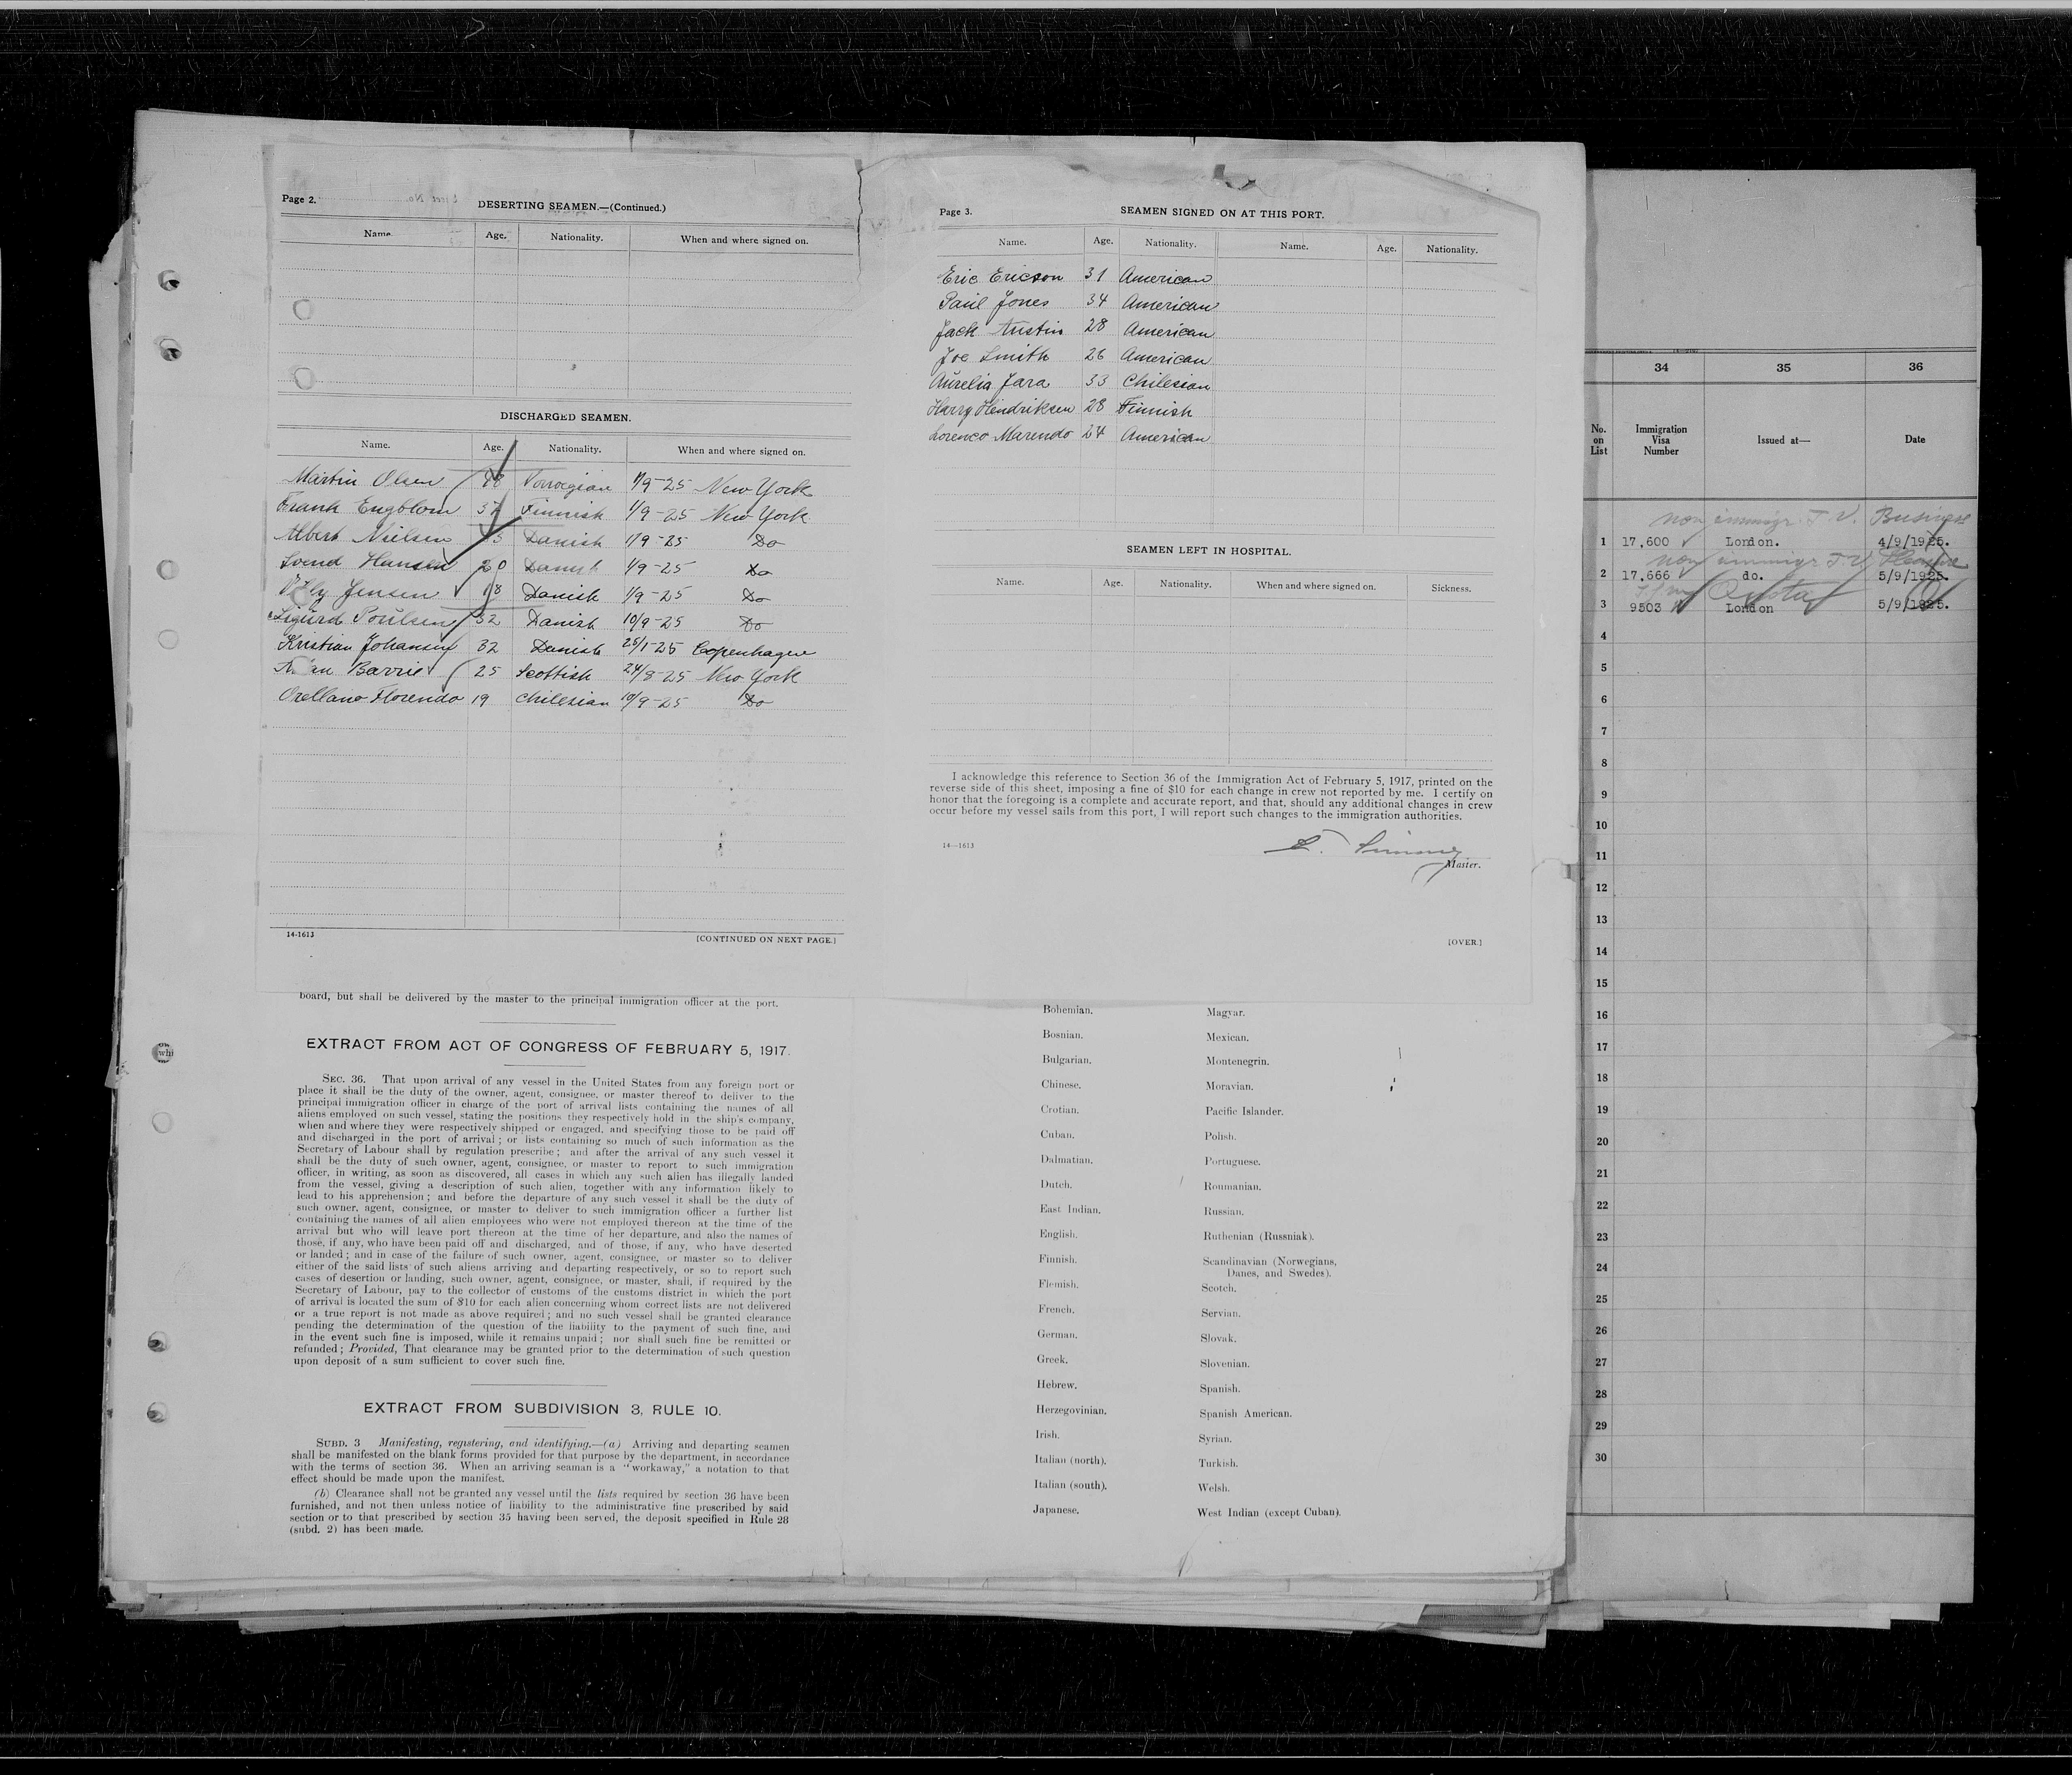 Page 2.
DESERTING SEAMEN.—(Continued.)
Name. Age. Nationality. When and where signed on.
DISCHARGED SEAMEN.
Name. Age. Nationality. When and where signed on.
Martin Olsen Norwegian 1/9-25 New York
Frank Engblom 37 Finnish 1/9-25 New York
Albert Nielsen Danish 1/9-25 Do
Svend Hansen 20 Danish 1/9-25 Do
Jensen 18 Danish 1/9-25 Do
Sigurd Poulsen 32 Danish 10/9-25 Do
Kristian Johansen 32 Danish 25/1-25 Copenhagen
Barrie 25 Scottish 24/8-25 New York
Orellano Florendo 19 Chilesian 10/9-25 Do
14-1613
[CONTINUED ON NEXT PAGE.]
Page 3.
SEAMEN SIGNED ON AT THIS PORT.
Name. Age. Nationality. Name. Age. Nationality.
Eric Ericson 31 American
Paul Jones 34 American
Jack Austin 28 American
Joe Smith 26 American
Aurelia Jara 33 Chilesian
Harry Hendriksen 28 Finnish
Lorenco Marendo 24 American
SEAMEN LEFT IN HOSPITAL.
Name. Age. Nationality. When and where signed on. Sickness.
I acknowledge this reference to Section 36 of the Immigration Act of February 5, 1917, printed on the
reverse side of this sheet, imposing a fine of $10 for each change in crew not reported by me. I certify on
honor that the foregoing is a complete and accurate report, and that, should any additional changes in crew
occur before my vessel sails from this port, I will report such changes to the immigration authorities.
14—1613
Master.
[OVER.]
board, but shall be delivered by the master to the principal immigration officer at the port.
EXTRACT FROM ACT OF CONGRESS OF FEBRUARY 5, 1917.
SEC. 36. That upon arrival of any vessel in the United States from any foreign port or
place it shall be the duty of the owner, agent, consignee, or master thereof to deliver to the
principal immigration officer in charge of the port of arrival lists containing the names of all
aliens employed on such vessel, stating the positions they respectively hold in the ship's company,
when and where they were respectively shipped or engaged, and specifying those to be paid off
and discharged in the port of arrival; or lists containing so much of such information as the
Secretary of Labour shall by regulation prescribe; and after the arrival of any such vessel it
shall be the duty of such owner, agent, consignee, or master to report to such immigration
officer, in writing, as soon as discovered, all cases in which any such alien has illegally landed
from the vessel, giving a description of such alien, together with any information likely to
lead to his apprehension; and before the departure of any such vessel it shall be the duty of
such owner, agent, consignee, or master to deliver to such immigration officer a further list
containing the names of all alien employees who were not employed thereon at the time of the
arrival but who will leave port thereon at the time of her departure, and also the names of
those, if any, who have been paid off and discharged, and of those, if any, who have deserted
or landed; and in case of the failure of such owner, agent, consignee, or master so to deliver
either of the said lists of such aliens arriving and departing respectively, or so to report such
cases of desertion or landing, such owner, agent, consignee, or master, shall, if required by the
Secretary of Labour, pay to the collector of customs of the customs district in which the port
of arrival is located the sum of $10 for each alien concerning whom correct lists are not delivered
or a true report is not made as above required; and no such vessel shall be granted clearance
pending the determination of the question of the liability to the payment of such fine, and
in the event such fine is imposed, while it remains unpaid; nor shall such fine be remitted or
refunded; Provided, That clearance may be granted prior to the determination of such question
upon deposit of a sum sufficient to cover such fine.
EXTRACT FROM SUBDIVISION 3, RULE 10.
SUBD. 3 Manifesting, registering, and identifying.—(a) Arriving and departing seamen
shall be manifested on the blank forms provided for that purpose by the department, in accordance
with the terms of section 36. When an arriving seaman is a "workaway," a notation to that
effect should be made upon the manifest.
(b) Clearance shall not be granted any vessel until the lists required by section 36 have been
furnished, and not then unless notice of liability to the administrative fine prescribed by said
section or to that prescribed by section 35 having been served, the deposit specified in Rule 28
(subd. 2) has been made.
Bohemian. Magyar.
Bosnian. Mexican.
Bulgarian. Montenegrin.
Chinese. Moravian.
Crotian. Pacific Islander.
Cuban. Polish.
Dalmatian. Portuguese.
Dutch. Roumanian.
East Indian. Russian.
English. Ruthenian (Russniak).
Finnish. Scandinavian (Norwegians,
Danes, and Swedes).
Flemish. Scotch.
French. Servian.
German. Slovak.
Greek. Slovenian.
Hebrew. Spanish.
Herzegovinian. Spanish American.
Irish. Syrian.
Italian (north). Turkish.
Italian (south). Welsh.
Japanese. West Indian (except Cuban).
34 35 36
No. on List Immigration Visa Number Issued at— Date
non immigr T.V. Business
1 17,600 London. 4/9/1925.
non immigr T.V.
2 17,666 do. 5/9/1925.
Quota
3 9503 London 5/9/1925.
4
5
6
7
8
9
10
11
12
13
14
15
16
17
18
19
20
21
22
23
24
25
26
27
28
29
30